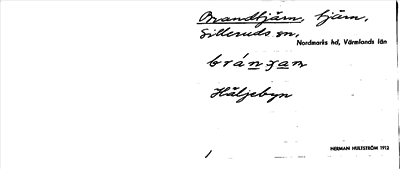 Brandtjärn, tjärn,
Silleruds sn,
Nordmarks hd, Värmlands län
bránʒan
Häljebyn
1
HERMAN HULTSTRÖM 1912